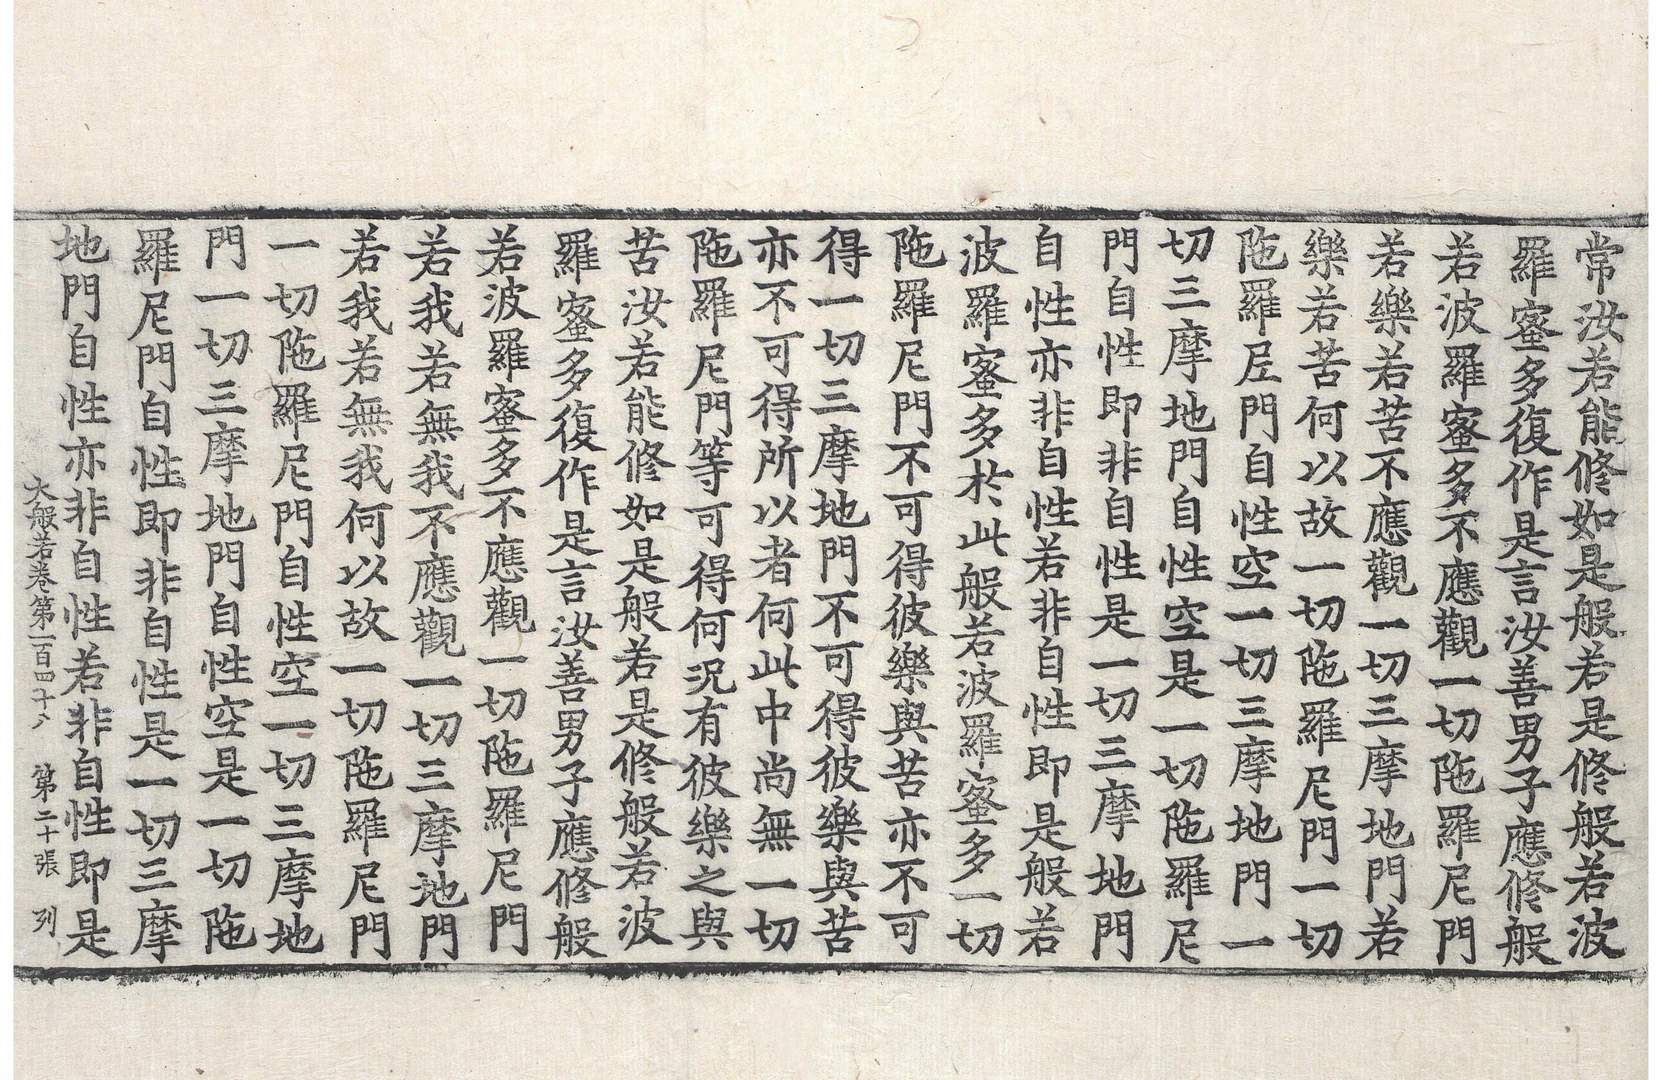 常汝若能修如是般若是修般若波
羅蜜多復作是言汝善男子應修般
若波羅蜜多不應觀一切陁羅尼門
若樂若苦不應觀一切三摩地門若
樂若苦何以故一切陁羅尼門一切
陁羅尼門自性空一切三摩地門一
切三摩地門自性空是一切陁羅尼
門自性即非自性是一切三摩地門
自性亦非自性若非自性即是般若
波羅蜜多於此般若波羅蜜多一切
陁羅尼門不可得彼樂與苦亦不可
得一切三摩地門不可得彼樂與苦
亦不可得所以者何此中尚無一切
陁羅尼門等可得何況有彼樂之與
苦汝若能修如是般若是修般若波
羅蜜多復作是言汝善男子應修般
若波羅蜜多不應觀一切陁羅尼門
若我若無我不應觀一切三摩地門
若我若無我何以故一切陁羅尼門
一切陁羅尼門自性空一切三摩地
門一切三摩地門自性空是一切陁
羅尼門自性即非自性是一切三摩
地門自性亦非自性若非自性即是
大般若卷第一百四十八 第二十張 列